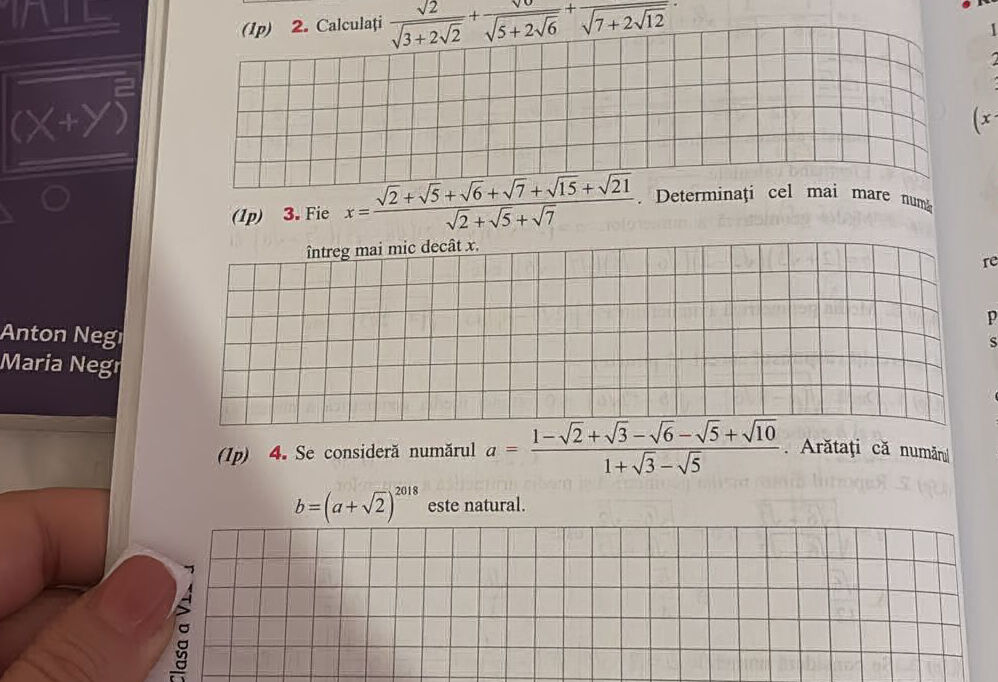 (1p) 2. Calculați √2/√(3+2√2) + /√(5+2√6) + /√(7+2√12).
(1p) 3. Fie x = (√2+√5+√6+√7+√15+√21)/(√2+√5+√7). Determinați cel mai mare
întreg mai mic decât x.
(1p) 4. Se consideră numărul a = (1−√2+√3−√6−√5+√10)/(1+√3−√5). Arătați că numărul
b=(a+√2)^2018 este natural.
(x+y)²
Anton Neg
Maria Negr
Clasa a
1
2
(x
re
p
s